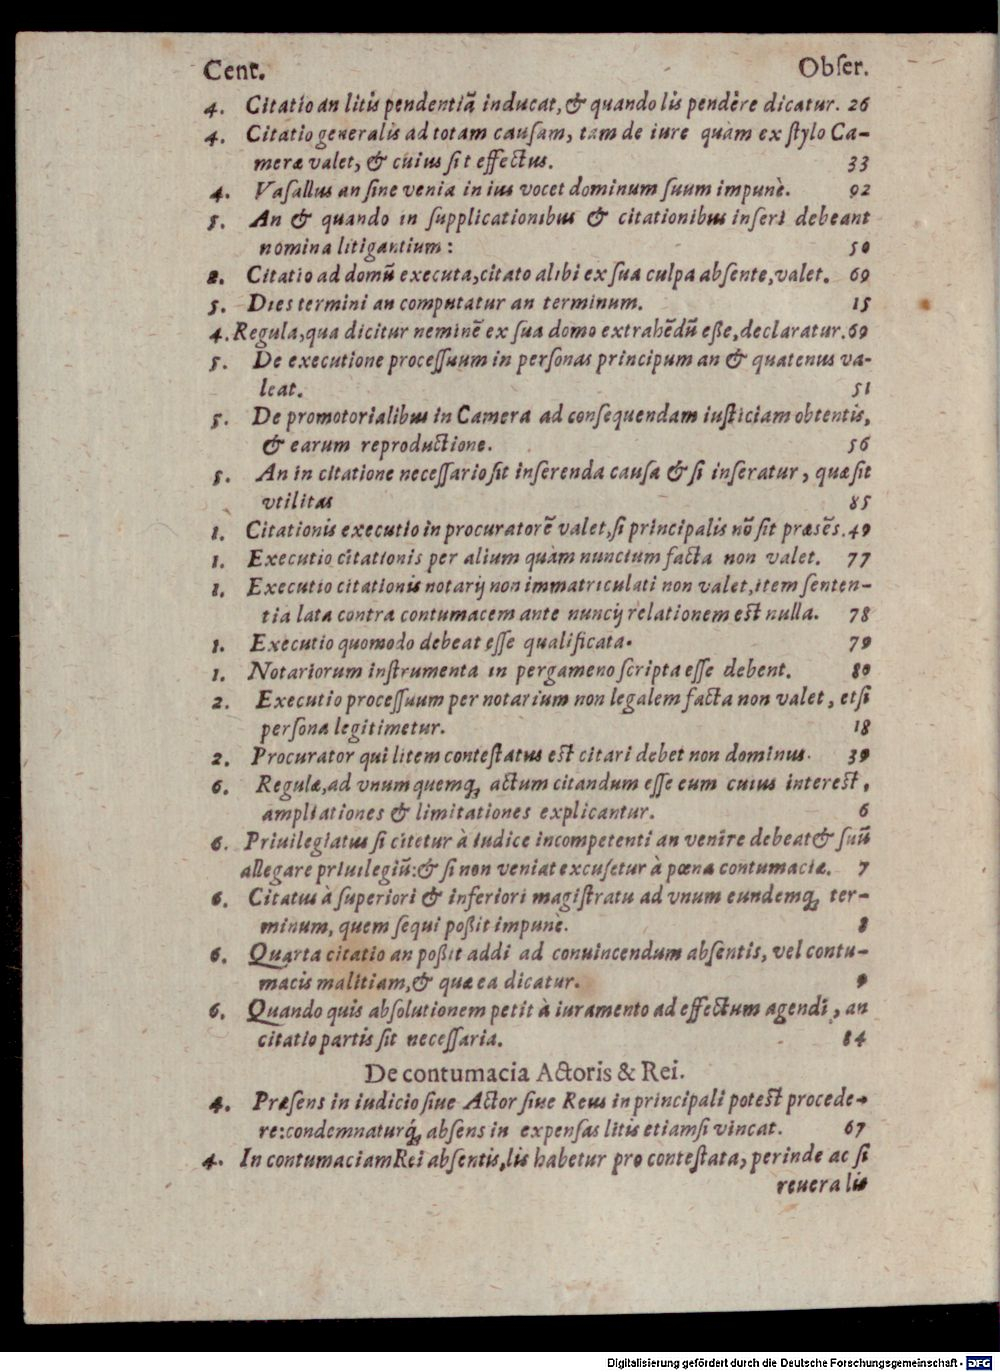 Cent. Obſer.
4. Citatio an litis pendentiã inducat, & quando lis pendère dicatur. 26
4. Citatio generalis ad totam cauſam, tam de iure quàm ex ſtylo Ca-
meræ valet, & cuius ſit effectus. 33
4. Vaſallus an ſine venia in ius vocet dominum ſuum impunè. 92
5. An & quando in ſupplicationibus & citationibus inſeri debeant
nomina litigantium: 50
2. Citatio ad domũ executa, citato alibi ex ſua culpa abſente, valet. 69
5. Dies termini an computatur an terminum. 15
4. Regula, qua dicitur neminẽ ex ſua domo extrahẽdũ eße, declaratur. 69
5. De executione proceſſuum in perſonas principum an & quatenus va-
leat. 51
5. De promotorialibus in Camera ad conſequendam iuſticiam obtentis,
& earum reproductione. 56
5. An in citatione neceſſario ſit inſerenda cauſa & ſi inſeratur, quæ ſit
vtilitas 85
1. Citationis executio in procuratorẽ valet, ſi principalis nõ ſit præsẽs. 49
1. Executio citationis per alium quàm nuncium facta non valet. 77
1. Executio citationis notarij non immatriculati non valet, item ſenten-
tia lata contra contumacem ante nuncij relationem est nulla. 78
1. Executio quomodo debeat eſſe qualificata. 79
1. Notariorum inſtrumenta in pergameno ſcripta eſſe debent. 80
2. Executio proceſſuum per notarium non legalem facta non valet, etſi
perſona legitimetur. 18
2. Procurator qui litem conteſtatus est citari debet non dominus. 39
6. Regulæ, ad vnumquemq; actum citandum eſſe eum cuius interest,
ampliationes & limitationes explicantur. 6
6. Priuilegiatus ſi citetur à iudice incompetenti an venire debeat & ſuũ
allegare priuilegiũ: & ſi non veniat excuſetur à pœna contumaciæ. 7
6. Citatus à ſuperiori & inferiori magiſtratu ad vnum eundemq; ter-
minum, quem ſequi poßit impunè. 8
6. Quarta citatio an poßit addi ad conuincendum abſentis, vel contu-
macis malitiam, & quæ ea dicatur. 9
6. Quando quis abſolutionem petit à iuramento ad effectum agendi, an
citatio partis ſit neceſſaria. 84
De contumacia Actoris & Rei.
4. Præſens in iudicio ſiue Actor ſiue Reus in principali potest procede-
re: condemnaturq́; abſens in expenſas litis etiamſi vincat. 67
4. In contumaciam Rei abſentis, lis habetur pro conteſtata, perinde ac ſi
reuera lis
Digitalisierung gefördert durch die Deutsche Forschungsgemeinschaft - DFG